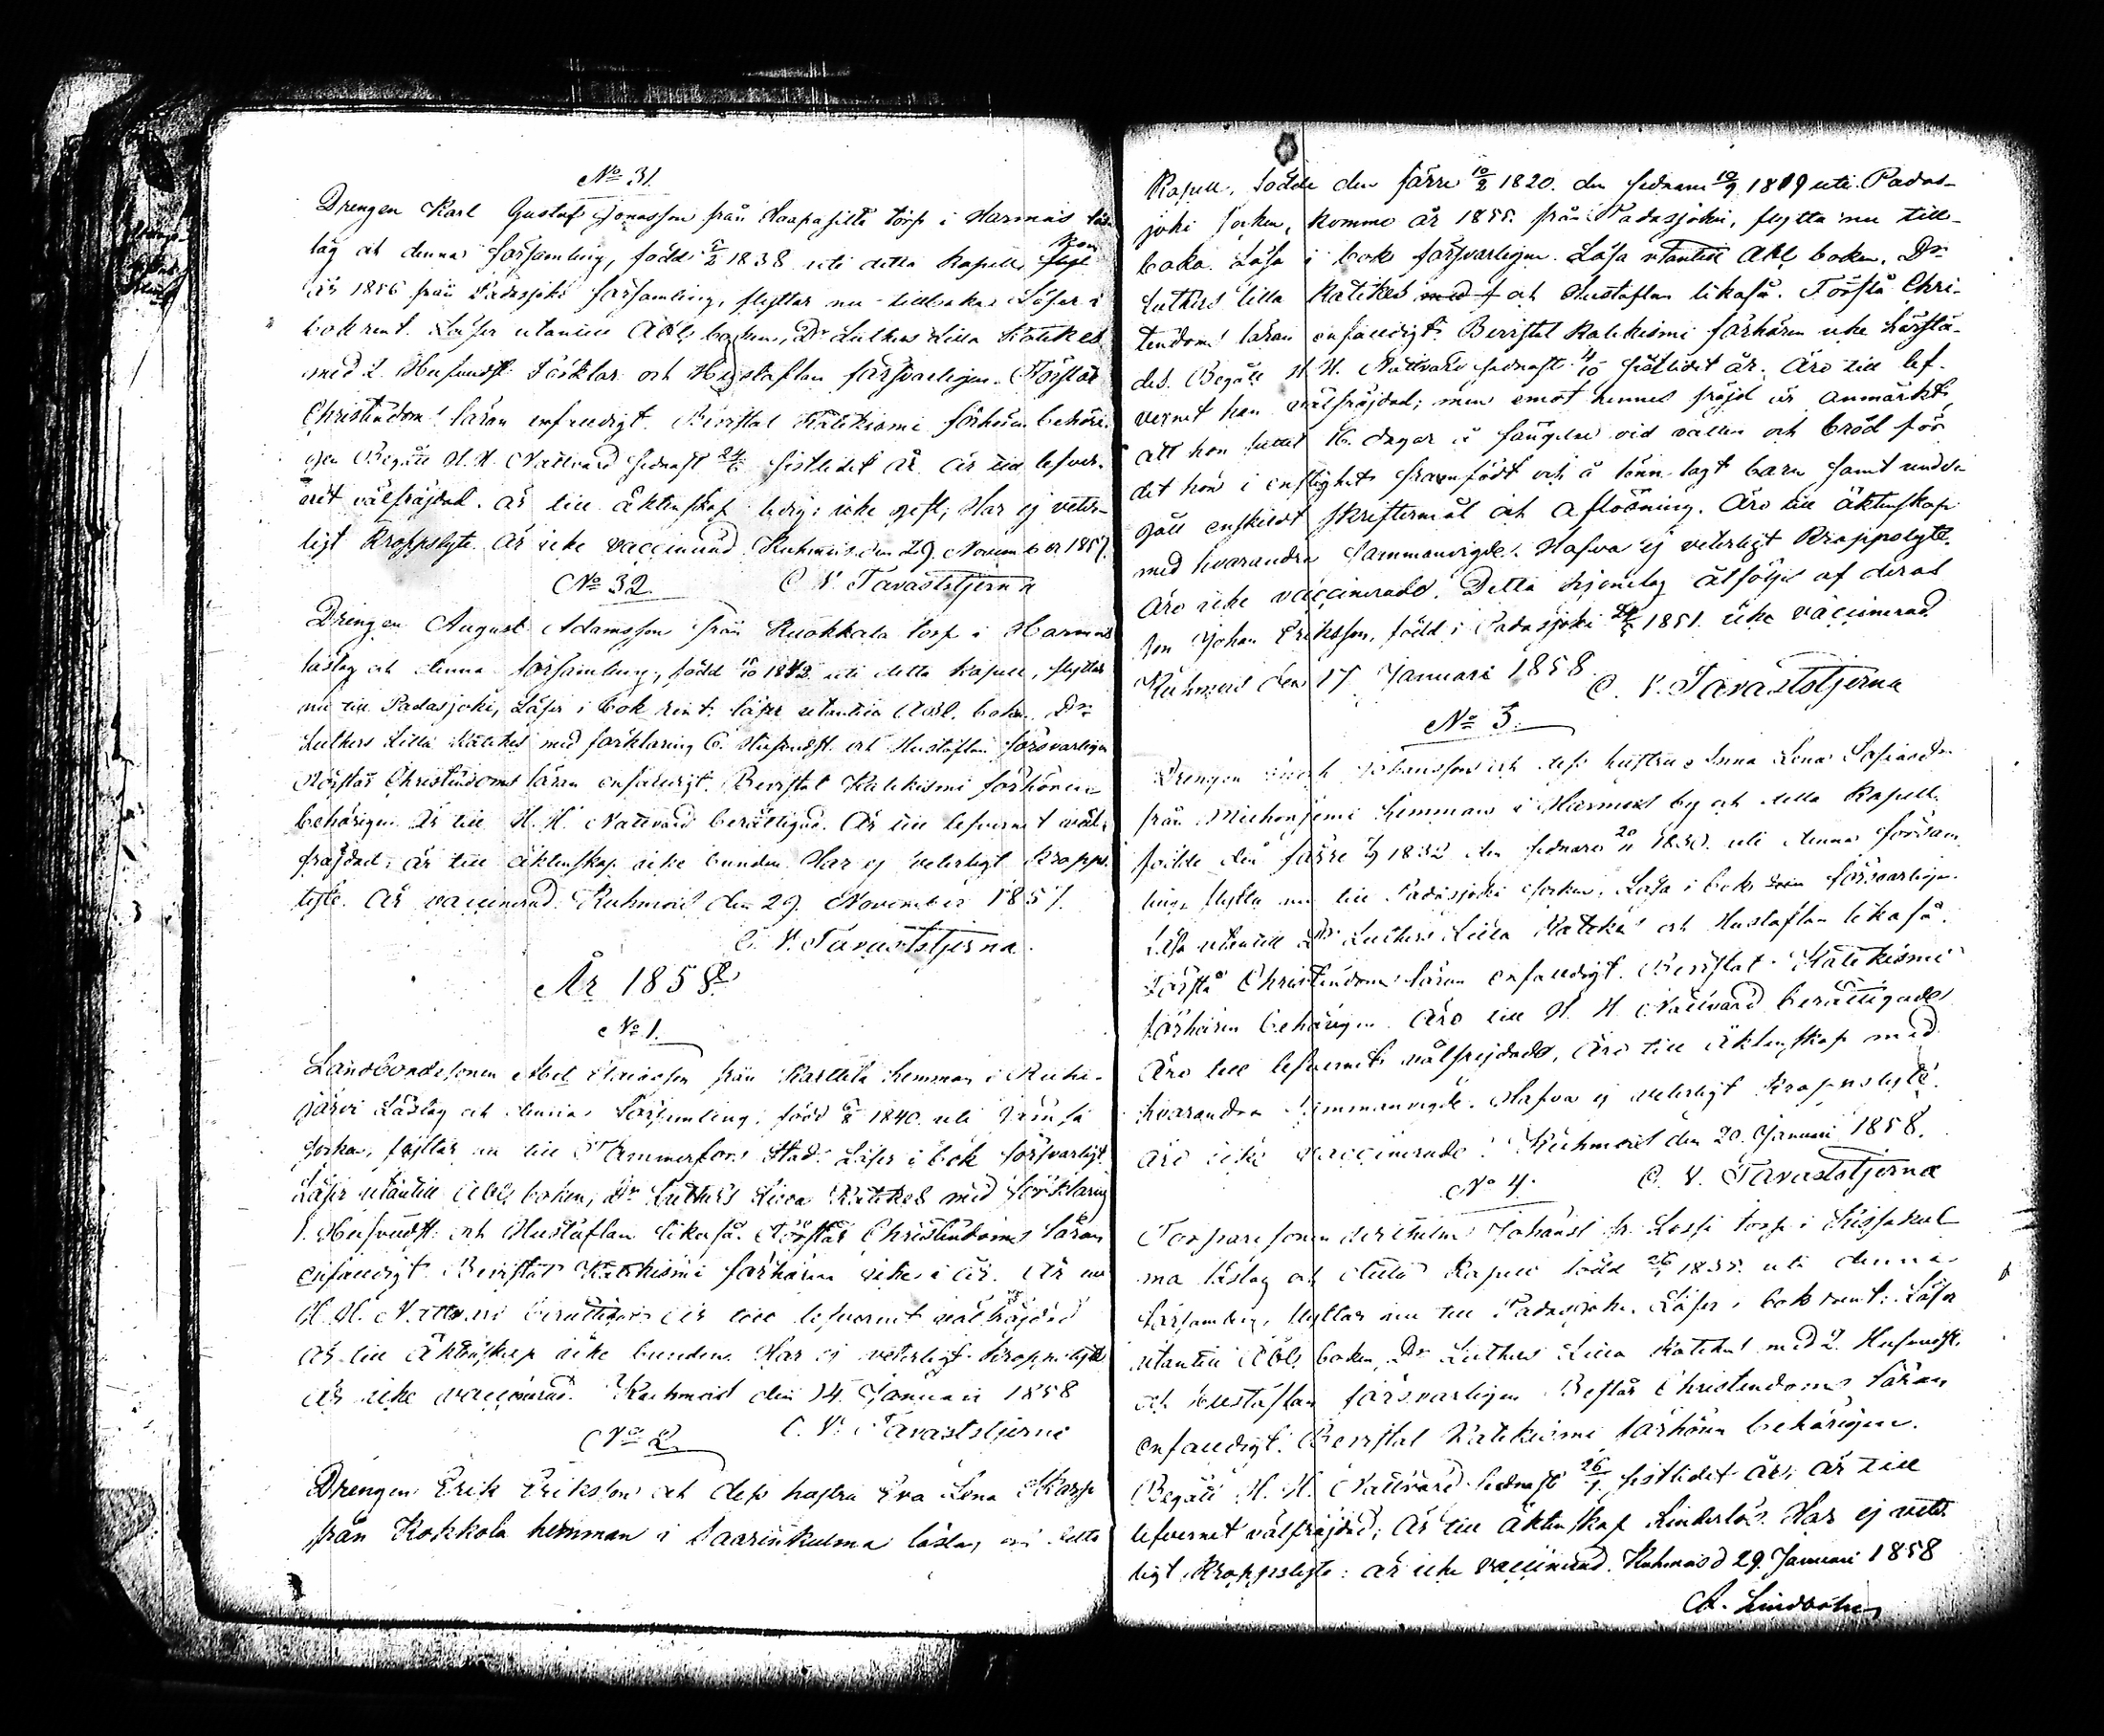 No 31.
Drengen Karl Gustaf Jonasson från Haapasilta torp i Harmois läse
lag och denna församling, född 2/2 1838 uti detta Kapell, kom
år 1856 från Padasjoki församling, flyttar nu tillbaka. Läser i
bok rent. Läser utantill Abl. boken, Dr Luthers Lilla Katekes
med 2. Hufvudst. Förklar. och Hustaflan försvarligen. Förstår
Christendoms läran enfaldigt. Bevistat Katekismi förhören behöri-
gen Begått H. H. Nattvard sednast 24/ sistlidet år. är till lefver-
net välfräjdad. är till äktenskap ledig: icke gift; Har ej veter-
ligt Kroppslyte. är icke vaccinerad. Kuhmois den 29. November 1857.
C. V. Tavaststjerna
No 32.
Drengen August Adamsson från Kuokkala torp i Harmois
läslag och denna församling, född 15/10 1842 uti detta Kapell, flyttar
nu till Padasjoki, Läser i bok rent. läser utantill Abl. boken. Dr
Luthers Lilla Katekes med förklaring 6. Hufvudst. och Hustaflan försvarligen
Förstår Christendoms läran enfaldigt. Bevistat Katekismi förhören
behörigen. Är till H. H. Nattvard berättigad. Är till lefvernet väl-
fräjdad; är till äktenskap icke bunden. Har ej veterligt Kropps-
lyte. Är vaccinerad. Kuhmois den 29. November 1857.
C. V. Tavaststjerna.
År 1858
No 1.
Landbondesonen Abel från Karttila hemman i
järvi Läslag och denna församling, född 1840. uti Jämsä
Socken, flyttar nu till Tammerfors Stad. Läser i bok försvarligt.
Läser utantill Abl. boken, Dr Luthers Lilla Katekes med förklaring
1. Hufvudst. och Hustaflan likaså. Förstår Christendoms läran
enfaldigt. Bevistat Katekismi förhören icke i år. Är till
H. H. Nattvard berättigad är till lefvernet välfräjdad
är till Äktenskap icke bunden. Har ej veterligt Kroppslyte
är icke vaccinerad. Kuhmois den 14. Januari 1858
C. V. Tavaststjerna
No 2.
Drengen Erik Eriksson och dess hustru Eva Lena
från Kokkola hemman i Saarinkulma läslag och detta
Kapell, födde den förre 10/2 1820. den sednare 10/9 1819 uti Padas-
joki socken, komne år 1855. från Padasjoki, flytta nu till-
baka. Läsa i bok försvarligen. Läsa utantill Abl boken. Dr
Luthers lilla Katekes med f och Hustaflan likaså. Förstå Chri-
tendoms läran enfaldigt. Bevistat Katekismi förhören icke
det. Begått H. H. Nattvard sednast 4/10 sistlidet år. Äro till lef-
vernet han välfräjdad; men emot hennes fräjd är anmärkt
att hon suttit 16. dagar i fängelse vid vatten och bröd för
det hon i enslighet framfödt och å lönn lagt barn samt under-
gått enskildt skriftermål och aflösning. Äro till äktenskap
med hvarandra Sammanvigde. Hafva ej veterligt Kroppslyte.
Äro icke vaccinerade. Detta hjonelag åtföljes af deras
son Johan Eriksson, född i Padasjoki 1851. icke vaccinerad
Kuhmois den 17. Januari 1858.
C. V. Tavaststjerna
No 3.
Drengen Johansson och dess hustru Anna Lena
från hemman i Harmois by och detta Kapell.
födde den förre 1832 den sednare 20/11 1830. uti denna försam
ling, flytta nu till Padasjoki socken. Läsa i bok försvarligen.
Läsa utantill Dr Luthers Lilla Katekes och Hustaflan likaså.
Förstå Christendoms läran enfaldigt. Bevistat Katekismi
förhören behörigen. Äro till H. H. Nattvard berättigade
Äro till lefvernet välfrejdade, Äro till Äktenskap med
hvarandra Sammanvigde. Hafva ej veterligt Kroppslyte.
Äro icke vaccinerade. Kuhmois den 20. Januari 1858.
C. V. Tavaststjerna
No 4.
Torparesonen Johansson fr. torp i
ma läslag och detta Kapell född 26/ 1835. uti denna
församling, flyttar nu till Padasjoki. Läser i bok rent. Läser
utantill Abl. boken, Dr Luthers Lilla Katekes med 2. Hufvudst.
och Hustaflan försvarligen Består Christendoms läran
enfaldigt. Bevistat Katekismi förhören behörigen.
Begått H. H. Nattvard sednast 26/7 sistlidet år; är till
lefvernet välfräjdad; är till äktenskap Har ej veter
ligt Kroppslyte: är icke vaccinerad. Kuhmois d 29. Januari 1858